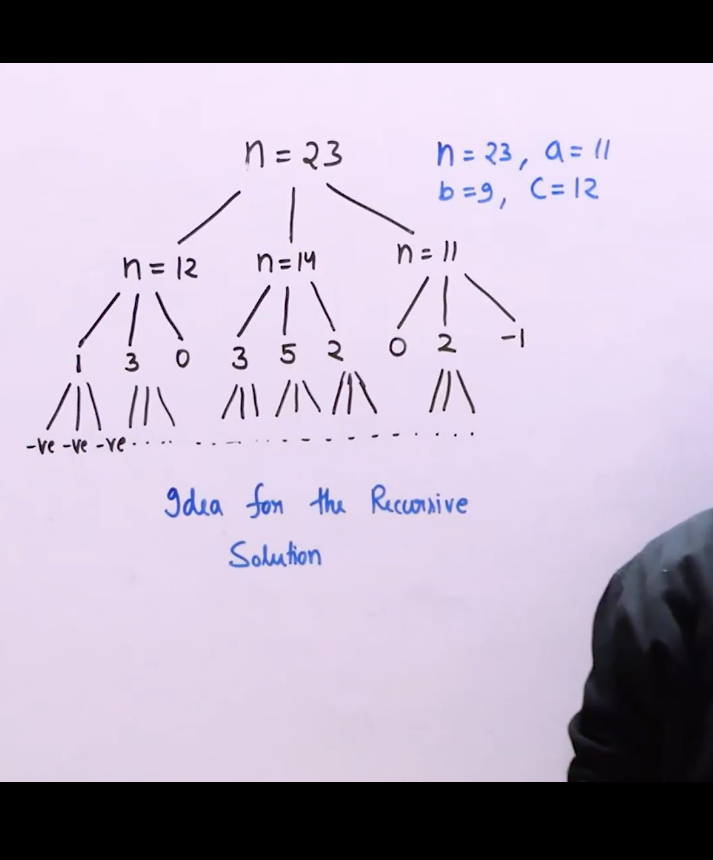 n = 23
n = 23, a = 11
b = 9, c = 12
n = 12 n = 14 n = 11
1 3 0 3 5 2 0 2 -1
-ve -ve -ve ..... . . . . . . . . . . . . . . .
Idea for the Recursive
Solution